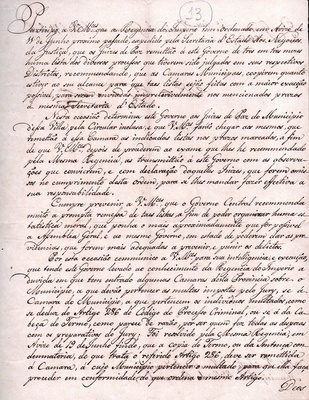 13
Participo a V. Mces que a Regencia do Imperio tem ordenado em Aviso de
de Junho proximo passado, expedido pela Secretaria d'Estado dos Negocios
da Justiça, que os Juizes de Paz remettão a este Governo de tres em tres mezes
huma lista dos diversos processos que tiverem sido julgados em seus respectivos
Districtos, recommendando, que as Camaras Municipaes, cooperem quanto
estiver ao seu alcance para que taes listas sejão feitas com a maior exacção
possivel, para serem enviadas nos mencionados prazos
á mesma Secretaria d'Estado.
Nesta occasião determino aos Juizes de Paz do Municipio
dessa Villa, pela Circular inclusa, que V. Mces farão chegar aos mesmos, que
remettão a essa Camara as indicadas listas nos prazos marcados, a fim
de que V. Mces depois de procederem ao exame que lhes he recommendado
pela Mesma Regencia, as transmittão á este Governo com as observa-
ções que convierem, e com declaração daquelles Juizes, que forem omis-
sos no cumprimento desta ordem, para á lhes mandar fazer effectiva a
sua responsabilidade.
Cumpre prevenir a V. Mces, que o Governo Central recommenda
muito a prompta remessa de taes listas a fim de poder organizar huma es-
tatistica moral, que ponha o mais aproximadamente que for possivel
a Assemblea Geral, e ao mesmo Governo, em estado de darem as pro-
videncias, que forem mais adequadas a prevenir, e punir os delictos.
Por esta occasião communico a V. Mces, para sua intelligencia, e execução,
que tendo este Governo levado ao conhecimento da Regencia do Imperio a
duvida em que tem entrado algumas Camaras desta Provincia sobre o
Municipio, a que deverão pertencer as multas impostas pelo Jury, se á
Camara do Municipio, a que pertencem os individuos multados como
se deduz do Artigo 286 do Codigo do Processo Criminal, ou se á da Ca-
beça do Termo, como parece de razão, por ser quem faz todas as despezas
com os preparativos do Jury; Foi resolvido pela Mesma Regencia, em
Aviso de 19 de Junho findo, que a copia do Termo, ou da Sentença con-
demnatoria, de que trata o referido Artigo 286, deve ser remettida
á Camara, a cujo Municipio pertencer o multado, para que ella faça
proceder em conformidade do que ordena o mesmo Artigo.
Deos